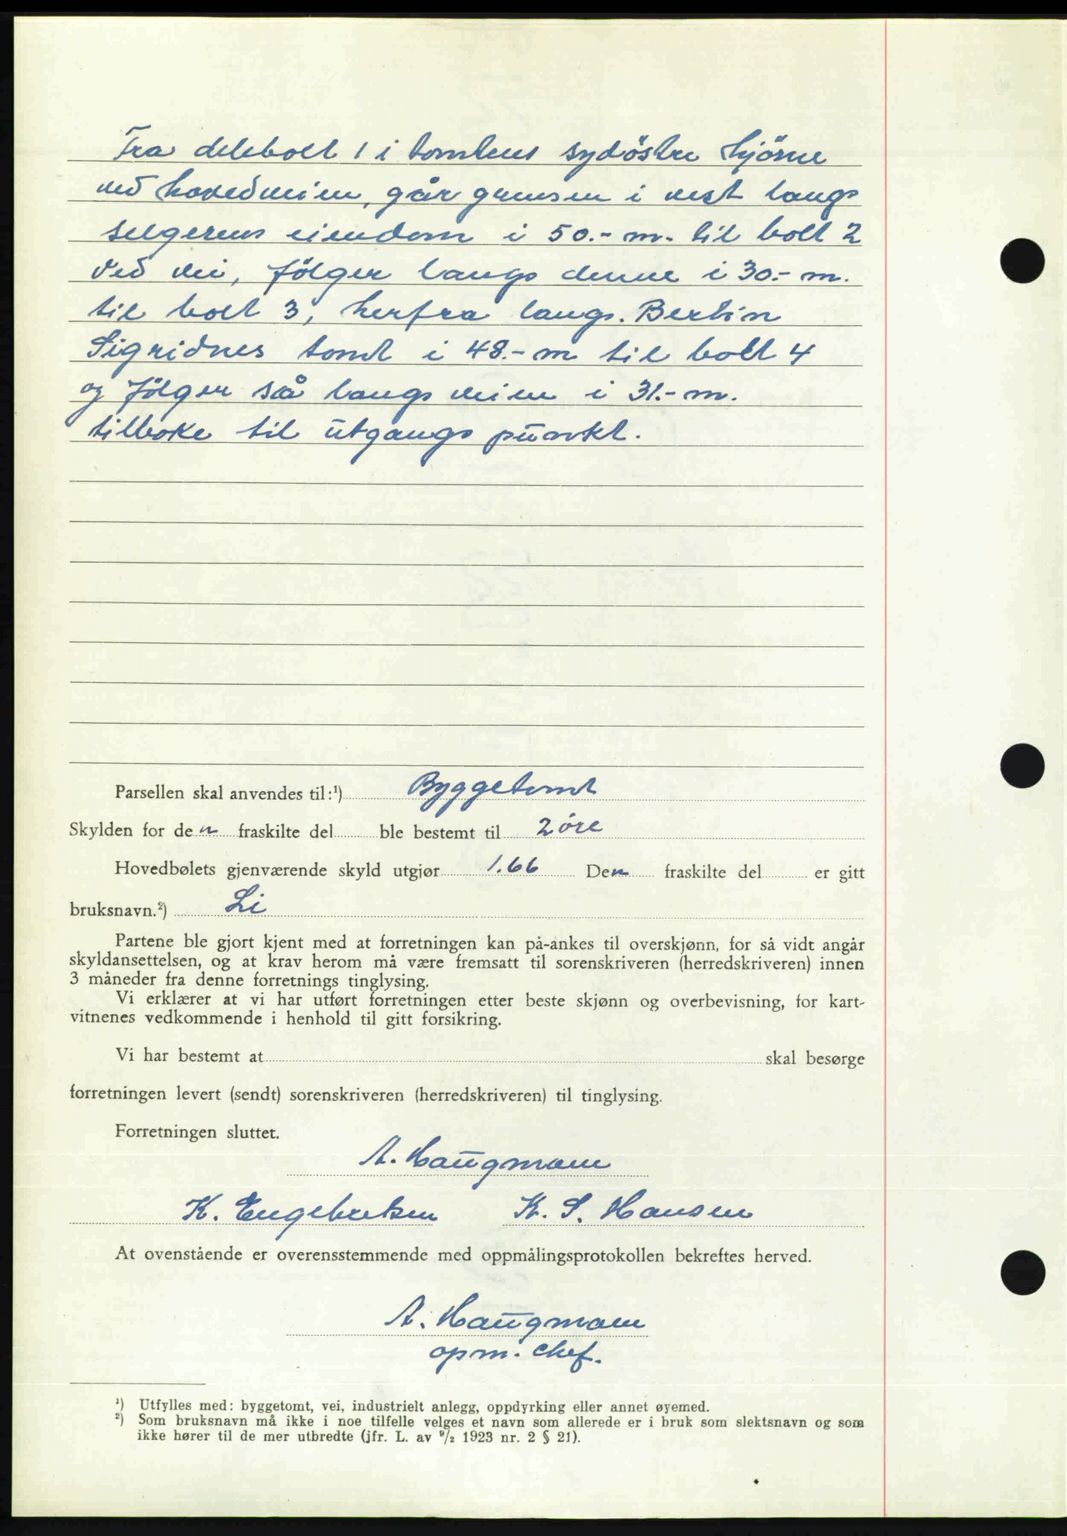 Fra delebolt 1 i tomtens sydöstre hjörne
ved hovedveien, går grensen i vest langs
selgerens eiendom i 50.- m. til bolt 2
ved vei, fölger langs denne i 30.- m.
til bolt 3, herfra langs. Bertin
Sigridnes tomt i 48.- m til bolt 4
og fölger så langs veien i 31.- m.
tilbake til utgangspunkt.
Parsellen skal anvendes til:¹) Byggetomt
Skylden for den fraskilte del ble bestemt til 2 öre
Hovedbølets gjenværende skyld utgjør 1.66 Den fraskilte del er gitt
bruksnavn.²) Li
Partene ble gjort kjent med at forretningen kan på-ankes til overskjønn, for så vidt angår
skyldansettelsen, og at krav herom må være fremsatt til sorenskriveren (herredskriveren) innen
3 måneder fra denne forretnings tinglysing.
Vi erklærer at vi har utført forretningen etter beste skjønn og overbevisning, for kart-
vitnenes vedkommende i henhold til gitt forsikring.
Vi har bestemt at skal besørge
forretningen levert (sendt) sorenskriveren (herredskriveren) til tinglysing.
Forretningen sluttet.
A. Haugmann
K. Engebretsen K. S. Hansen
At ovenstående er overensstemmende med oppmålingsprotokollen bekreftes herved.
A. Haugmann
opm. chef.
¹) Utfylles med: byggetomt, vei, industrielt anlegg, oppdyrking eller annet øyemed.
²) Som bruksnavn må ikke i noe tilfelle velges et navn som allerede er i bruk som slektsnavn og som
ikke hører til de mer utbredte (jfr. L. av ⁹/₂ 1923 nr. 2 § 21).